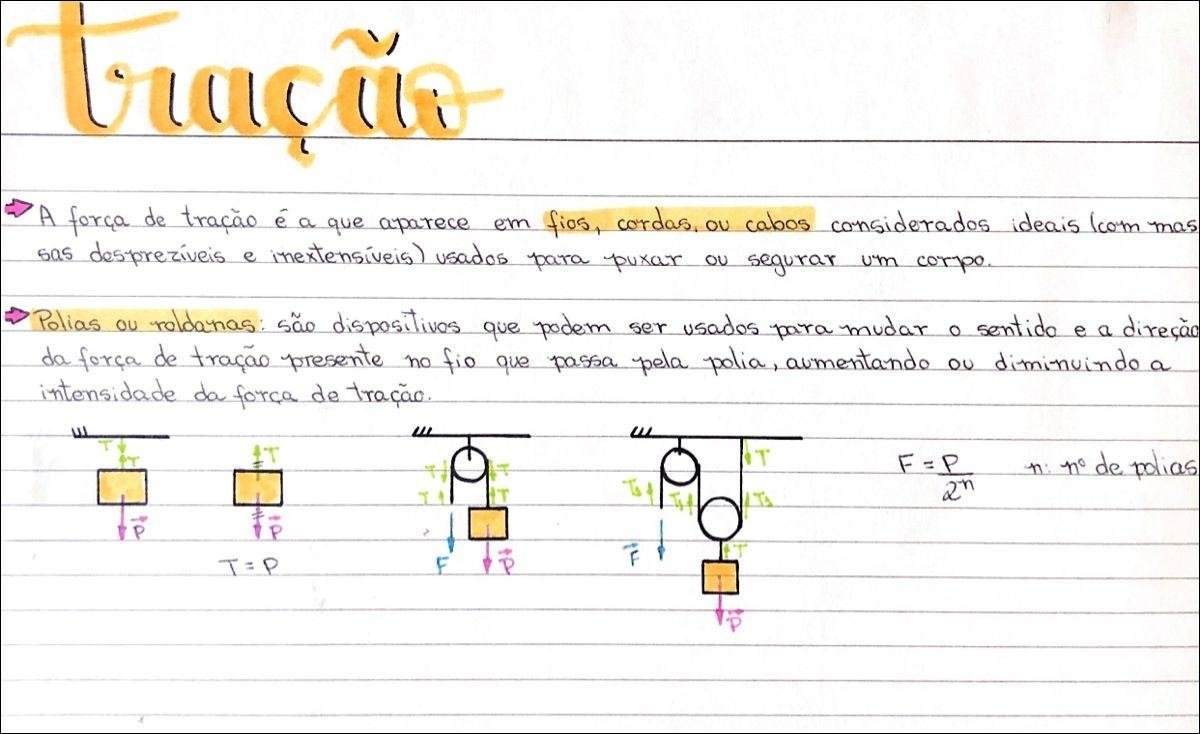 tração
A força de tração é a que aparece em fios, cordas, ou cabos considerados ideais (com mas
sas desprezíveis e inextensíveis) usados para puxar ou segurar um corpo.
Polias ou roldanas: são dispositivos que podem ser usados para mudar o sentido e a direção
da força de tração presente no fio que passa pela polia, aumentando ou diminuindo a
intensidade da força de tração.
T T P
T P
T = P
T T T T F P
T T P F
F = P/2ⁿ n: nº de polias